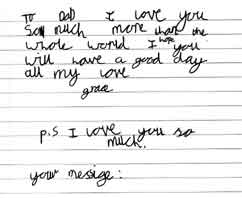 To Dad I love you
Soo much more than the
whole world I hope you
will have a good day
all my love
grace
P.S I love you so
much.
your mesige: